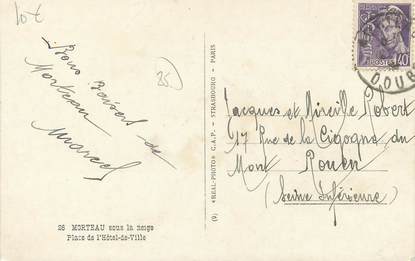 10€
25
Bons Baisers de
Morteau
Marcel
26 MORTEAU sous la neige
Place de l'Hôtel-de-Ville
(9) «REAL-PHOTO» C.A.P. - STRASBOURG - PARIS
POSTES
40
DOU
Jacques et Mireille Robert
17 Rue de la Cigogne du
Mont Rouen
(Seine Inférieure)